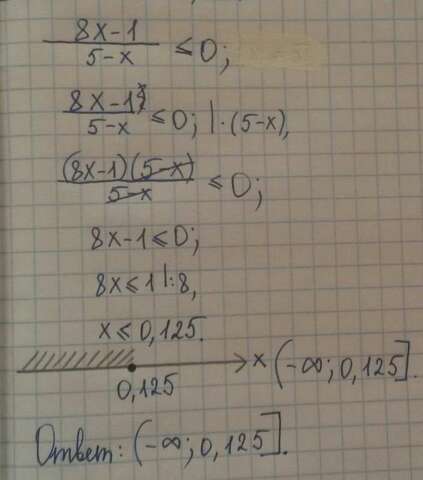 (8x-1)/(5-x) ≤ 0;
(8x-1)/(5-x) ≤ 0; | · (5-x),
(8x-1)(5-x)/(5-x) ≤ 0;
8x-1 ≤ 0;
8x ≤ 1 |:8,
x ≤ 0,125.
x (-∞; 0,125].
0,125
Ответ: (-∞; 0,125].